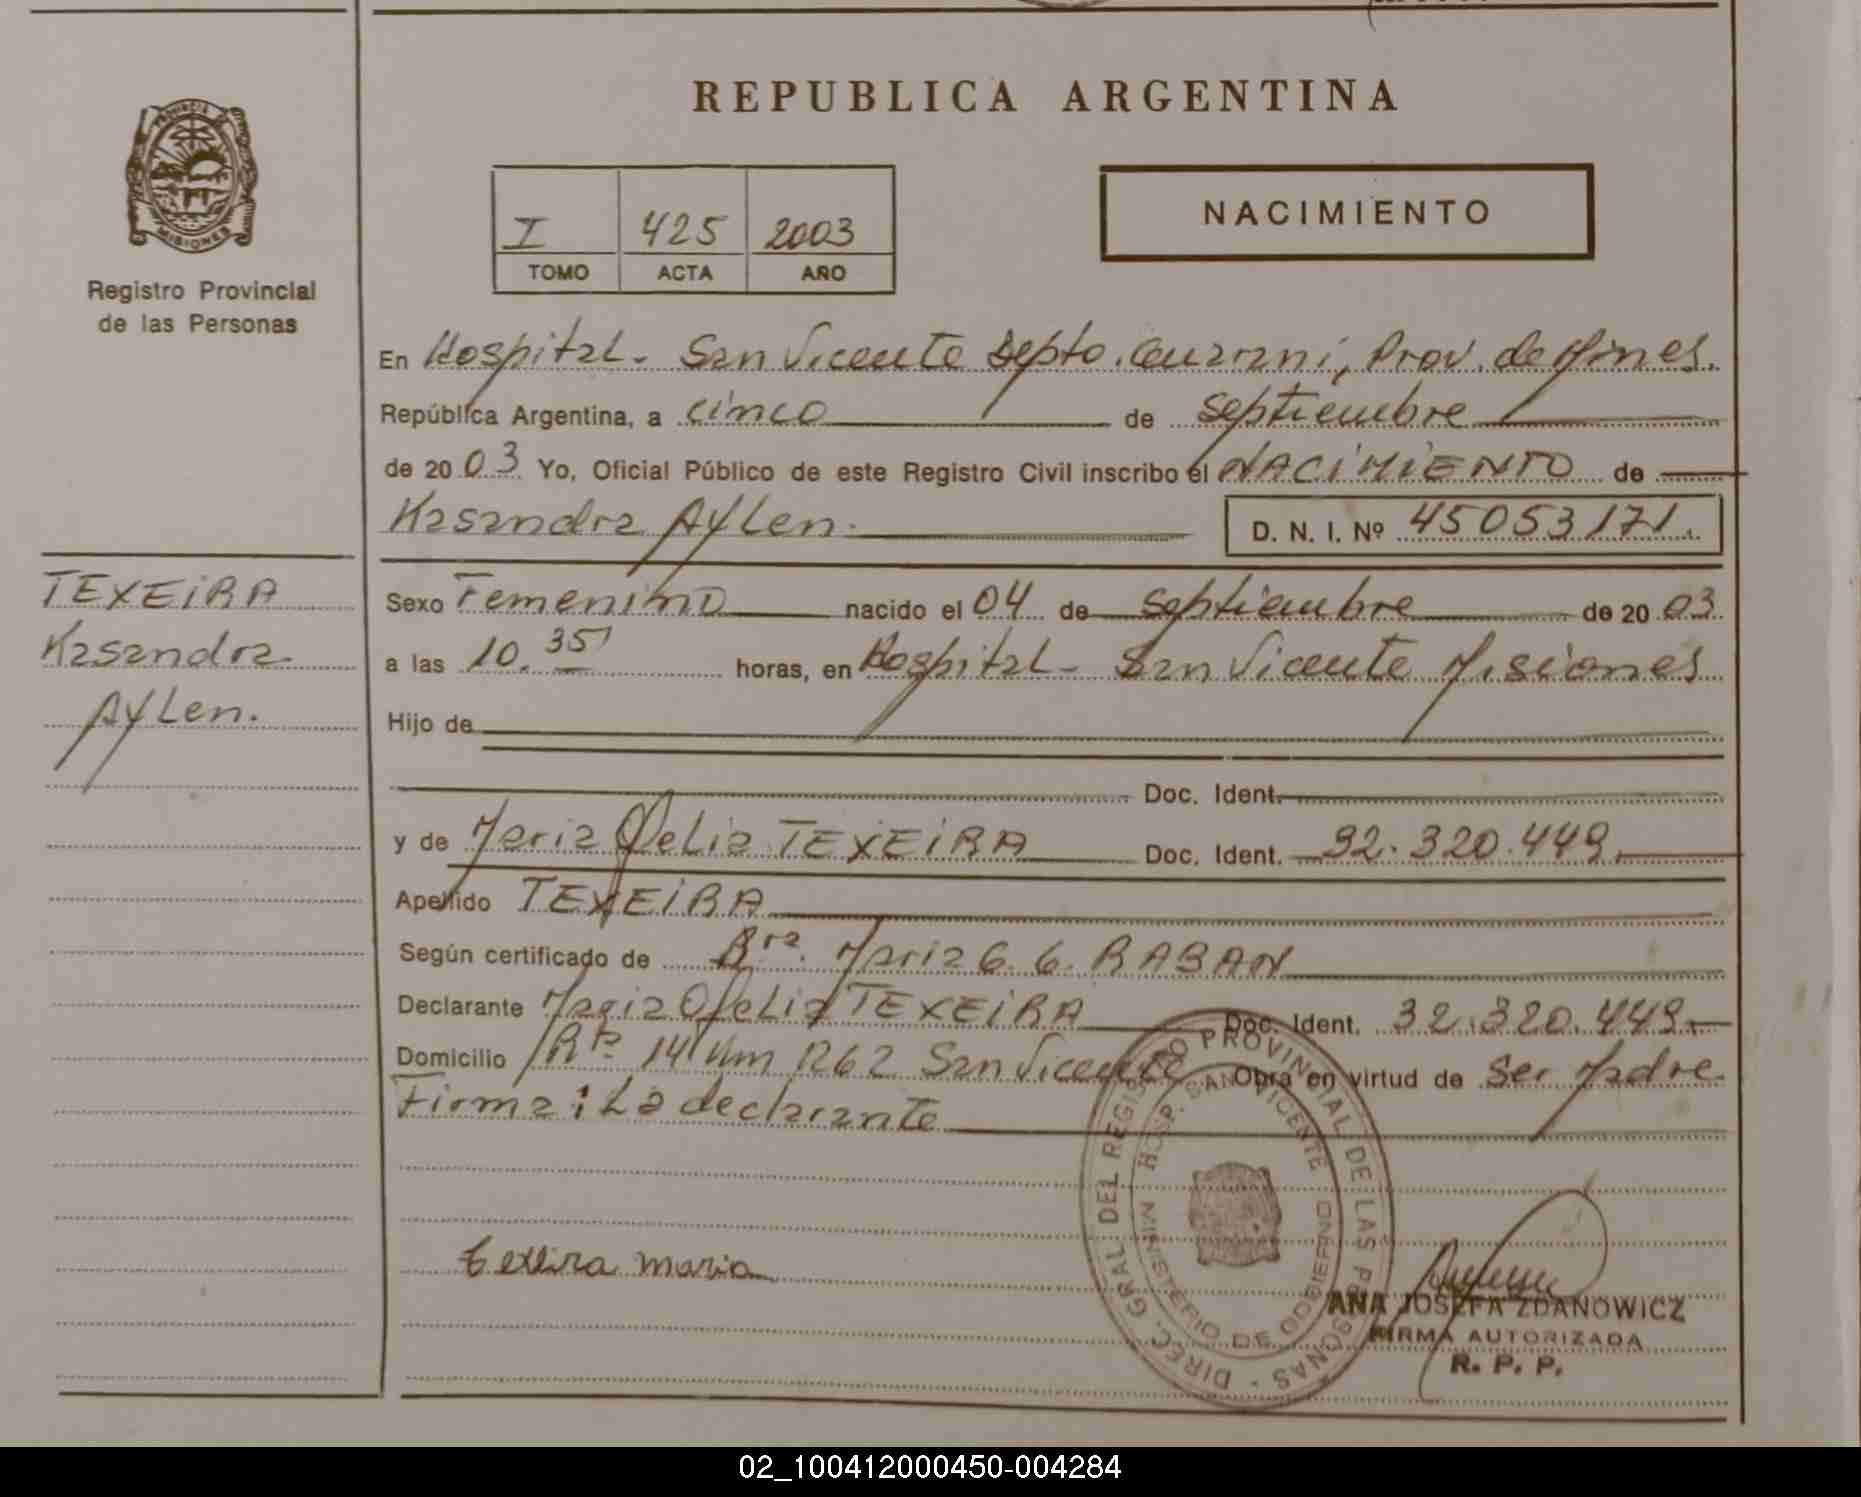 REPUBLICA ARGENTINA
PROVINCIA DE MISIONES
Registro Provincial
de las Personas
I 425 2003
TOMO ACTA AÑO
NACIMIENTO
En Hospital - San Vicente Depto. Guarani, Prov. de Mnes.
República Argentina, a cinco de Septiembre
de 2003 Yo, Oficial Público de este Registro Civil inscribo el NACIMIENTO de
Kasandra Aylen. D. N. I. Nº 45053171.
TEXEIRA
Kasandra
Aylen.
Sexo Femenino nacido el 04 de Septiembre de 20 03
a las 10.35 horas, en Hospital - San Vicente Misiones
Hijo de
Doc. Ident.
y de Maria Ofelia TEXEIRA Doc. Ident. 32.320.449.
Apellido TEXEIRA
Según certificado de Dra. Maria G. G. RABAN
Declarante Maria Ofelia TEXEIRA Doc. Ident. 32.320.449.
Domicilio Rta 14 Km 1262 San Vicente Obra en virtud de Ser Madre
Firma: La declarante
texeira maria
DIREC. GRAL DEL REGISTRO PROVINCIAL DE LAS PERSONAS
HOSP. SAN VICENTE
MINISTERIO DE GOBIERNO
ANA JOSEFA ZDANOWICZ
FIRMA AUTORIZADA
R. P. P.
02_100412000450-004284